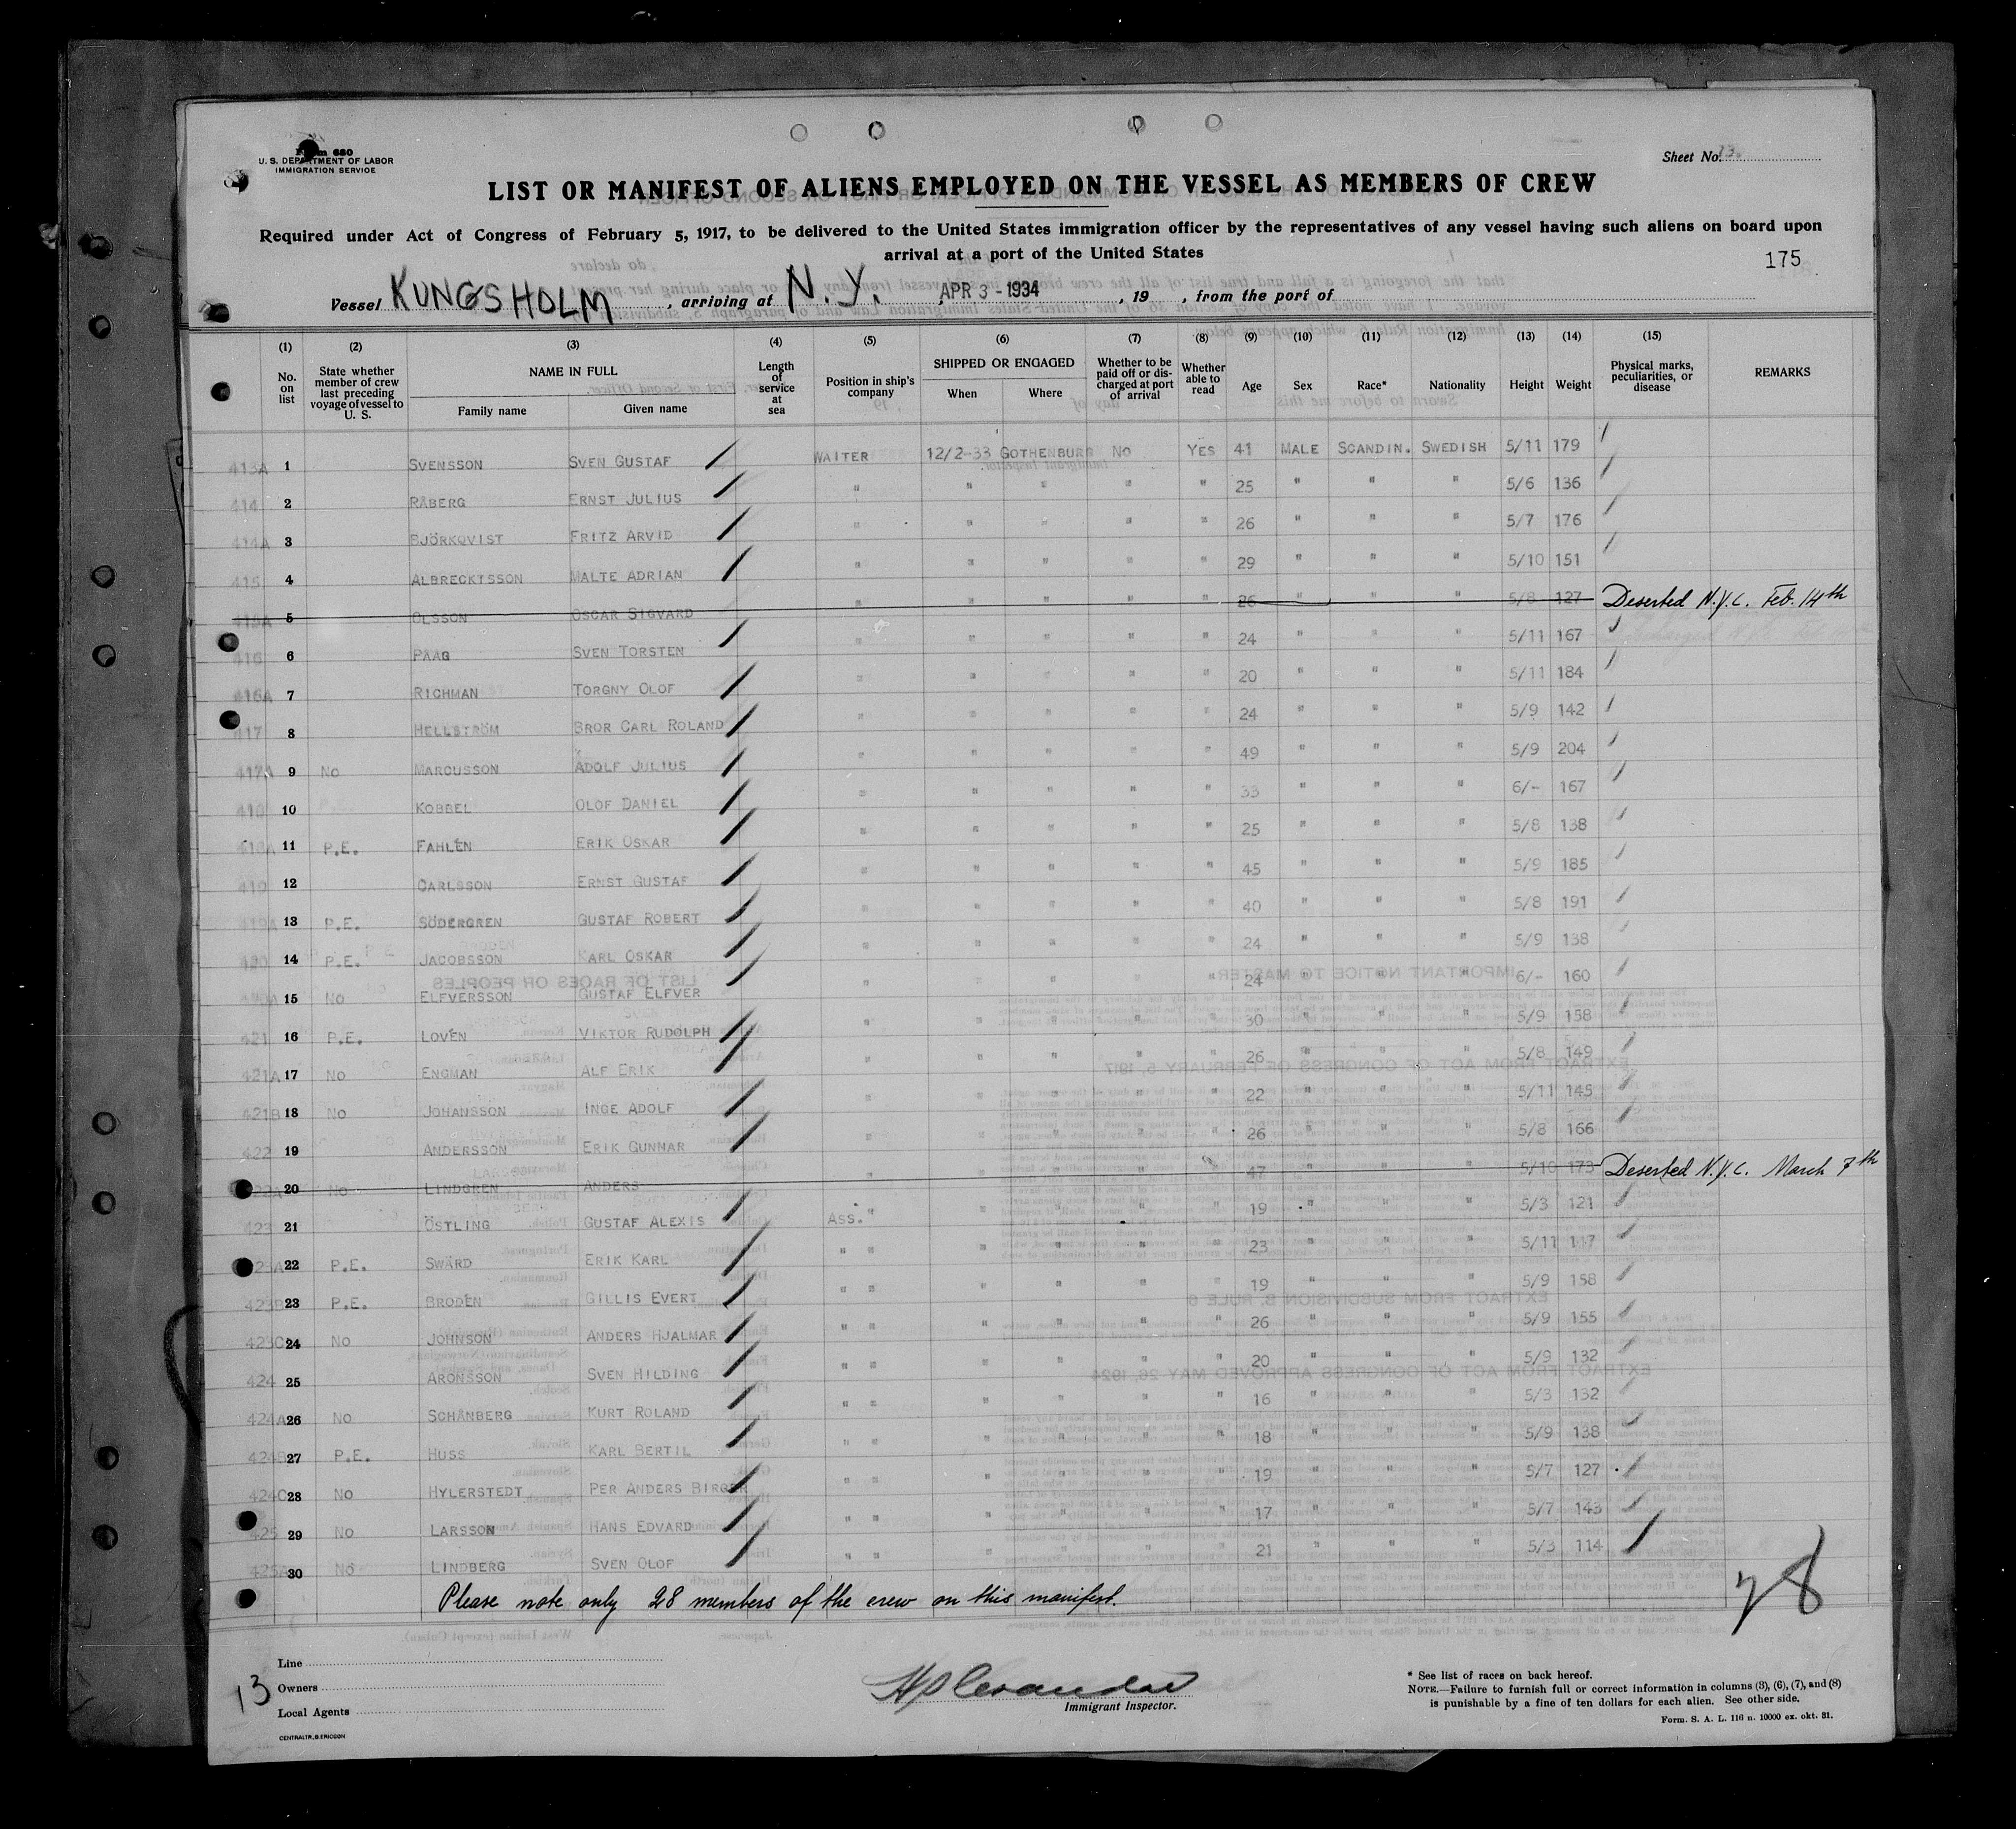 Form 680
U. S. DEPARTMENT OF LABOR
IMMIGRATION SERVICE
Sheet No. 13.
LIST OR MANIFEST OF ALIENS EMPLOYED ON THE VESSEL AS MEMBERS OF CREW
Required under Act of Congress of February 5, 1917, to be delivered to the United States immigration officer by the representatives of any vessel having such aliens on board upon
arrival at a port of the United States
175
Vessel KUNGSHOLM, arriving at N.Y. APR 3 - 1934, 19 , from the port of
(1) (2) (3) (4) (5) (6) (7) (8) (9) (10) (11) (12) (13) (14) (15)
No. on list State whether member of crew last preceding voyage of vessel to U. S. NAME IN FULL Family name Given name Length of service at sea Position in ship's company SHIPPED OR ENGAGED When Where Whether to be paid off or discharged at port of arrival Whether able to read Age Sex Race* Nationality Height Weight Physical marks, peculiarities, or disease REMARKS
413A 1 SVENSSON SVEN GUSTAF WAITER 12/2-33 GOTHENBURG NO YES 41 MALE SCANDIN. SWEDISH 5/11 179
414 2 RÅBERG ERNST JULIUS " " " " " 25 " " " 5/6 136
414A 3 BJÖRKQVIST FRITZ ARVID " " " " " 26 " " " 5/7 176
415 4 ALBRECKTSSON MALTE ADRIAN " " " " " 29 " " " 5/10 151
415A 5 OLSSON OSCAR SIGVARD " " " " " 26 " " " 5/8 127 Deserted N.Y.C. Feb. 14th
416 6 PAAG SVEN TORSTEN " " " " " 24 " " " 5/11 167
416A 7 RICHMAN TORGNY OLOF " " " " " 20 " " " 5/11 184
417 8 HELLSTRÖM BROR CARL ROLAND " " " " " 24 " " " 5/9 142
417A 9 NO MARCUSSON ADOLF JULIUS " " " " " 49 " " " 5/9 204
418 10 KOBBEL OLOF DANIEL " " " " " 33 " " " 6/- 167
418A 11 P.E. FAHLÉN ERIK OSKAR " " " " " 25 " " " 5/8 138
419 12 CARLSSON ERNST GUSTAF " " " " " 45 " " " 5/9 185
419A 13 P.E. SÖDERGREN GUSTAF ROBERT " " " " " 40 " " " 5/8 191
420 14 P.E. JACOBSSON KARL OSKAR " " " " " 24 " " " 5/9 138
420A 15 NO ELFVERSSON GUSTAF ELFVER " " " " " 24 " " " 6/- 160
421 16 P.E. LOVÉN VIKTOR RUDOLPH " " " " " 30 " " " 5/9 158
421A 17 NO ENGMAN ALF ERIK " " " " " 26 " " " 5/8 149
421B 18 NO JOHANSSON INGE ADOLF " " " " " 22 " " " 5/11 145
422 19 ANDERSSON ERIK GUNNAR " " " " " 26 " " " 5/8 166
422A 20 NO LINDGREN ANDERS " " " " " 47 " " " 5/10 173 Deserted N.Y.C. March 7th
423 21 ÖSTLING GUSTAF ALEXIS ASS. " " " " " 19 " " " 5/3 121
423A 22 P.E. SWÄRD ERIK KARL " " " " " " 23 " " " 5/11 117
423B 23 P.E. BRODÉN GILLIS EVERT " " " " " " 19 " " " 5/9 158
423C 24 NO JOHNSON ANDERS HJALMAR " " " " " " 26 " " " 5/9 155
424 25 ARONSSON SVEN HILDING " " " " " " 20 " " " 5/9 132
424A 26 NO SCHÅNBERG KURT ROLAND " " " " " " 16 " " " 5/3 132
424B 27 P.E. HUSS KARL BERTIL " " " " " " 18 " " " 5/9 138
424C 28 NO HYLERSTEDT PER ANDERS BIRGER " " " " " " 19 " " " 5/7 127
425 29 NO LARSSON HANS EDVARD " " " " " " 17 " " " 5/7 143
425A 30 NO LINDBERG SVEN OLOF " " " " " " 21 " " " 5/3 114
Please note only 28 members of the crew on this manifest.
28
13
Line
Owners
Local Agents
CENTRALTR. B. ERICSON
Immigrant Inspector.
* See list of races on back hereof.
NOTE.—Failure to furnish full or correct information in columns (3), (6), (7), and (8)
is punishable by a fine of ten dollars for each alien. See other side.
Form. S. A. L. 116 n. 10000 ex. okt. 31.